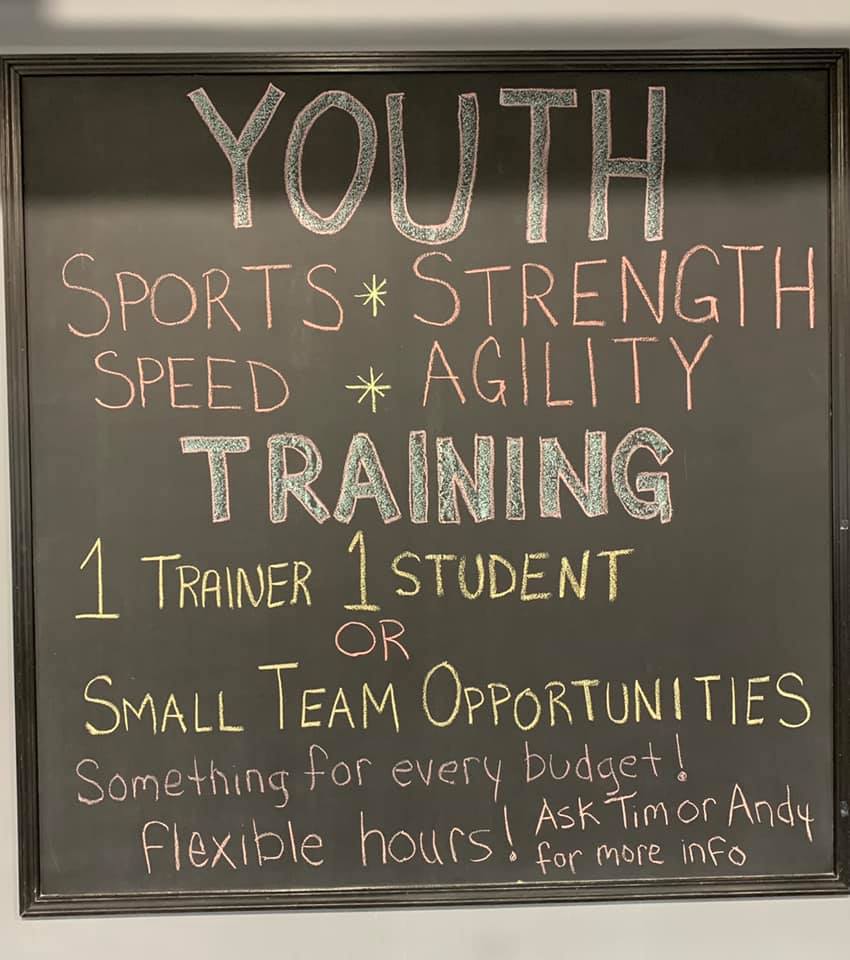 YOUTH
SPORTS * STRENGTH
SPEED * AGILITY
TRAINING
1 TRAINER 1 STUDENT
OR
SMALL TEAM OPPORTUNITIES
Something for every budget!
flexible hours! Ask Tim or Andy
for more info